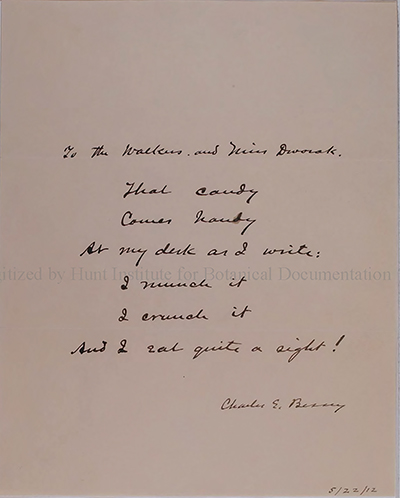 To the Walkers and Miss Dvorak.
That candy
Comes handy
At my desk as I write:
I munch it
I crunch it
And I eat quite a sight!
gitized by Hunt Institute for Botanical Documentation
Charles E. Bessey
5/22/12